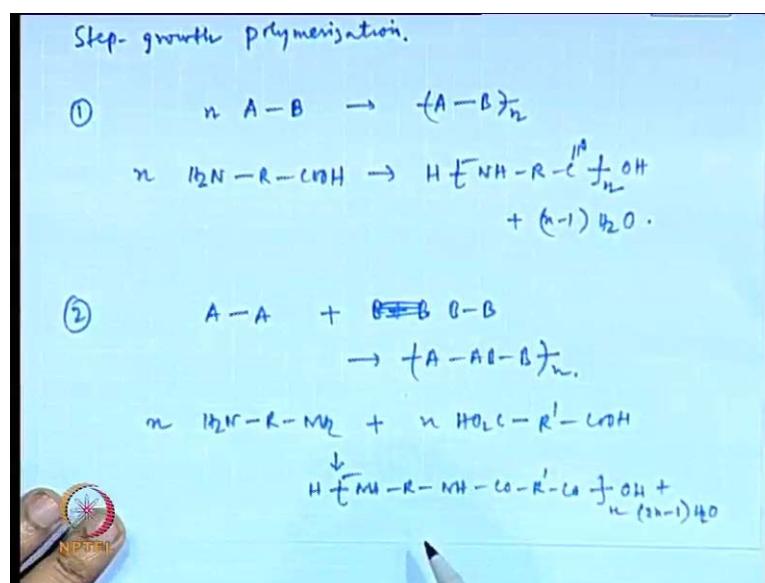 Step-growth polymerisation.
① n A-B → -(A-B)-n
n H2N-R-COOH → H-[-NH-R-C(=O)-]-n OH
+ (n-1) H2O.
② A-A + B-B
→ -(A-AB-B)-n.
n H2N-R-NH2 + n HO2C-R'-COOH
↓
H-[-NH-R-NH-CO-R'-CO-]-n OH +
(2n-1) H2O
NPTEL